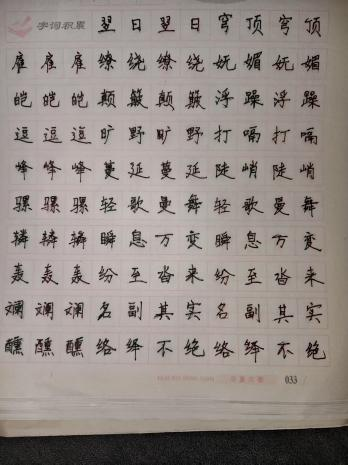 字词积累 翌日翌日穹顶穹顶
缭绕缭绕妩媚妩媚
皑皑皑颠簸颠簸浮躁浮躁
逗逗逗旷野旷野打嗝打嗝
峰峰峰蔓延蔓延陡峭陡峭
骡骡骡轻歌曼舞轻歌曼舞
瞬息万变瞬息万变
轰轰轰纷至沓来纷至沓来
斓斓斓名副其实名副其实
醺醺醺络绎不绝络绎不绝
033